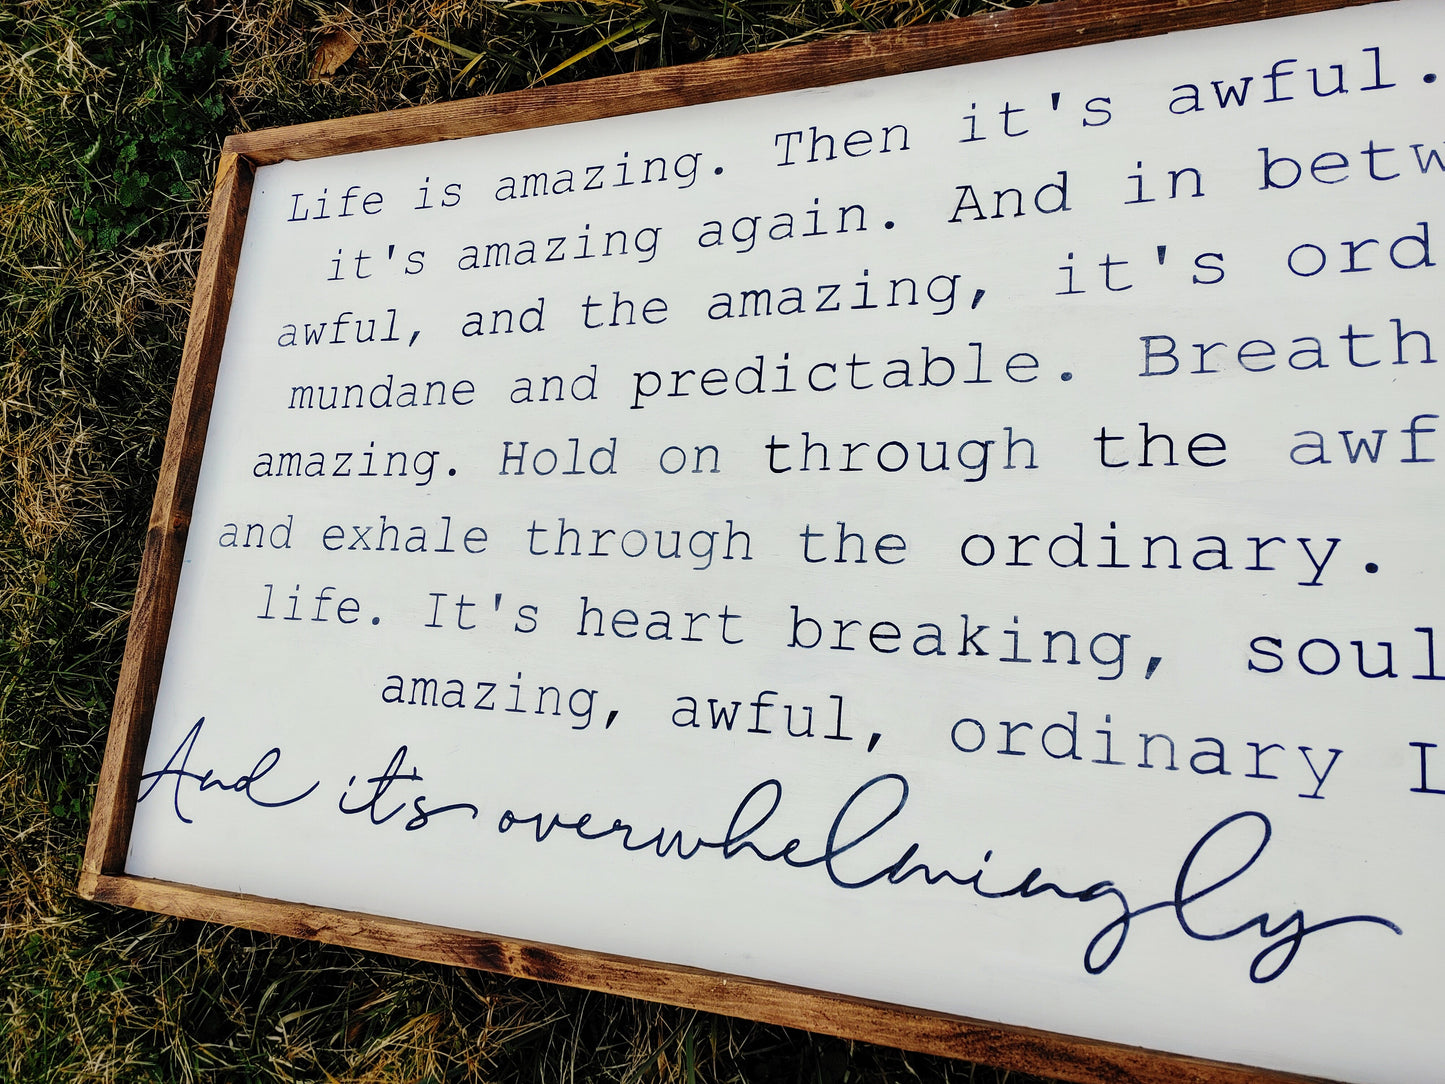 Life is amazing. Then it's awful.
it's amazing again. And in betw
awful, and the amazing, it's ord
mundane and predictable. Breath
amazing. Hold on through the awf
and exhale through the ordinary.
life. It's heart breaking, soul
amazing, awful, ordinary L
And it's overwhelmingly